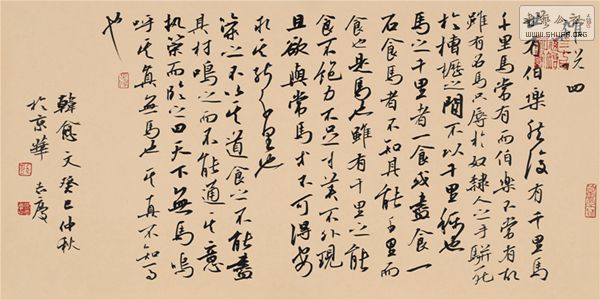 雜說四
世有伯樂然後有千里馬
千里馬常有而伯樂不常有故
雖有名馬只辱於奴隸人之手駢死
於槽櫪之間不以千里稱也
馬之千里者一食或盡食一
石食馬者不知其能千里而
食之是馬也雖有千里之能
食不飽力不足才美不外現
且欲與常馬才不可得安
求其能千里也
策之不以其道食之不能盡
其材鳴之而不能通其意
執策而臨之曰天下無馬嗚
呼其真無馬也其真不知馬
也
韓愈文癸巳仲秋
於京華志慶
www.SHUFA.ORG